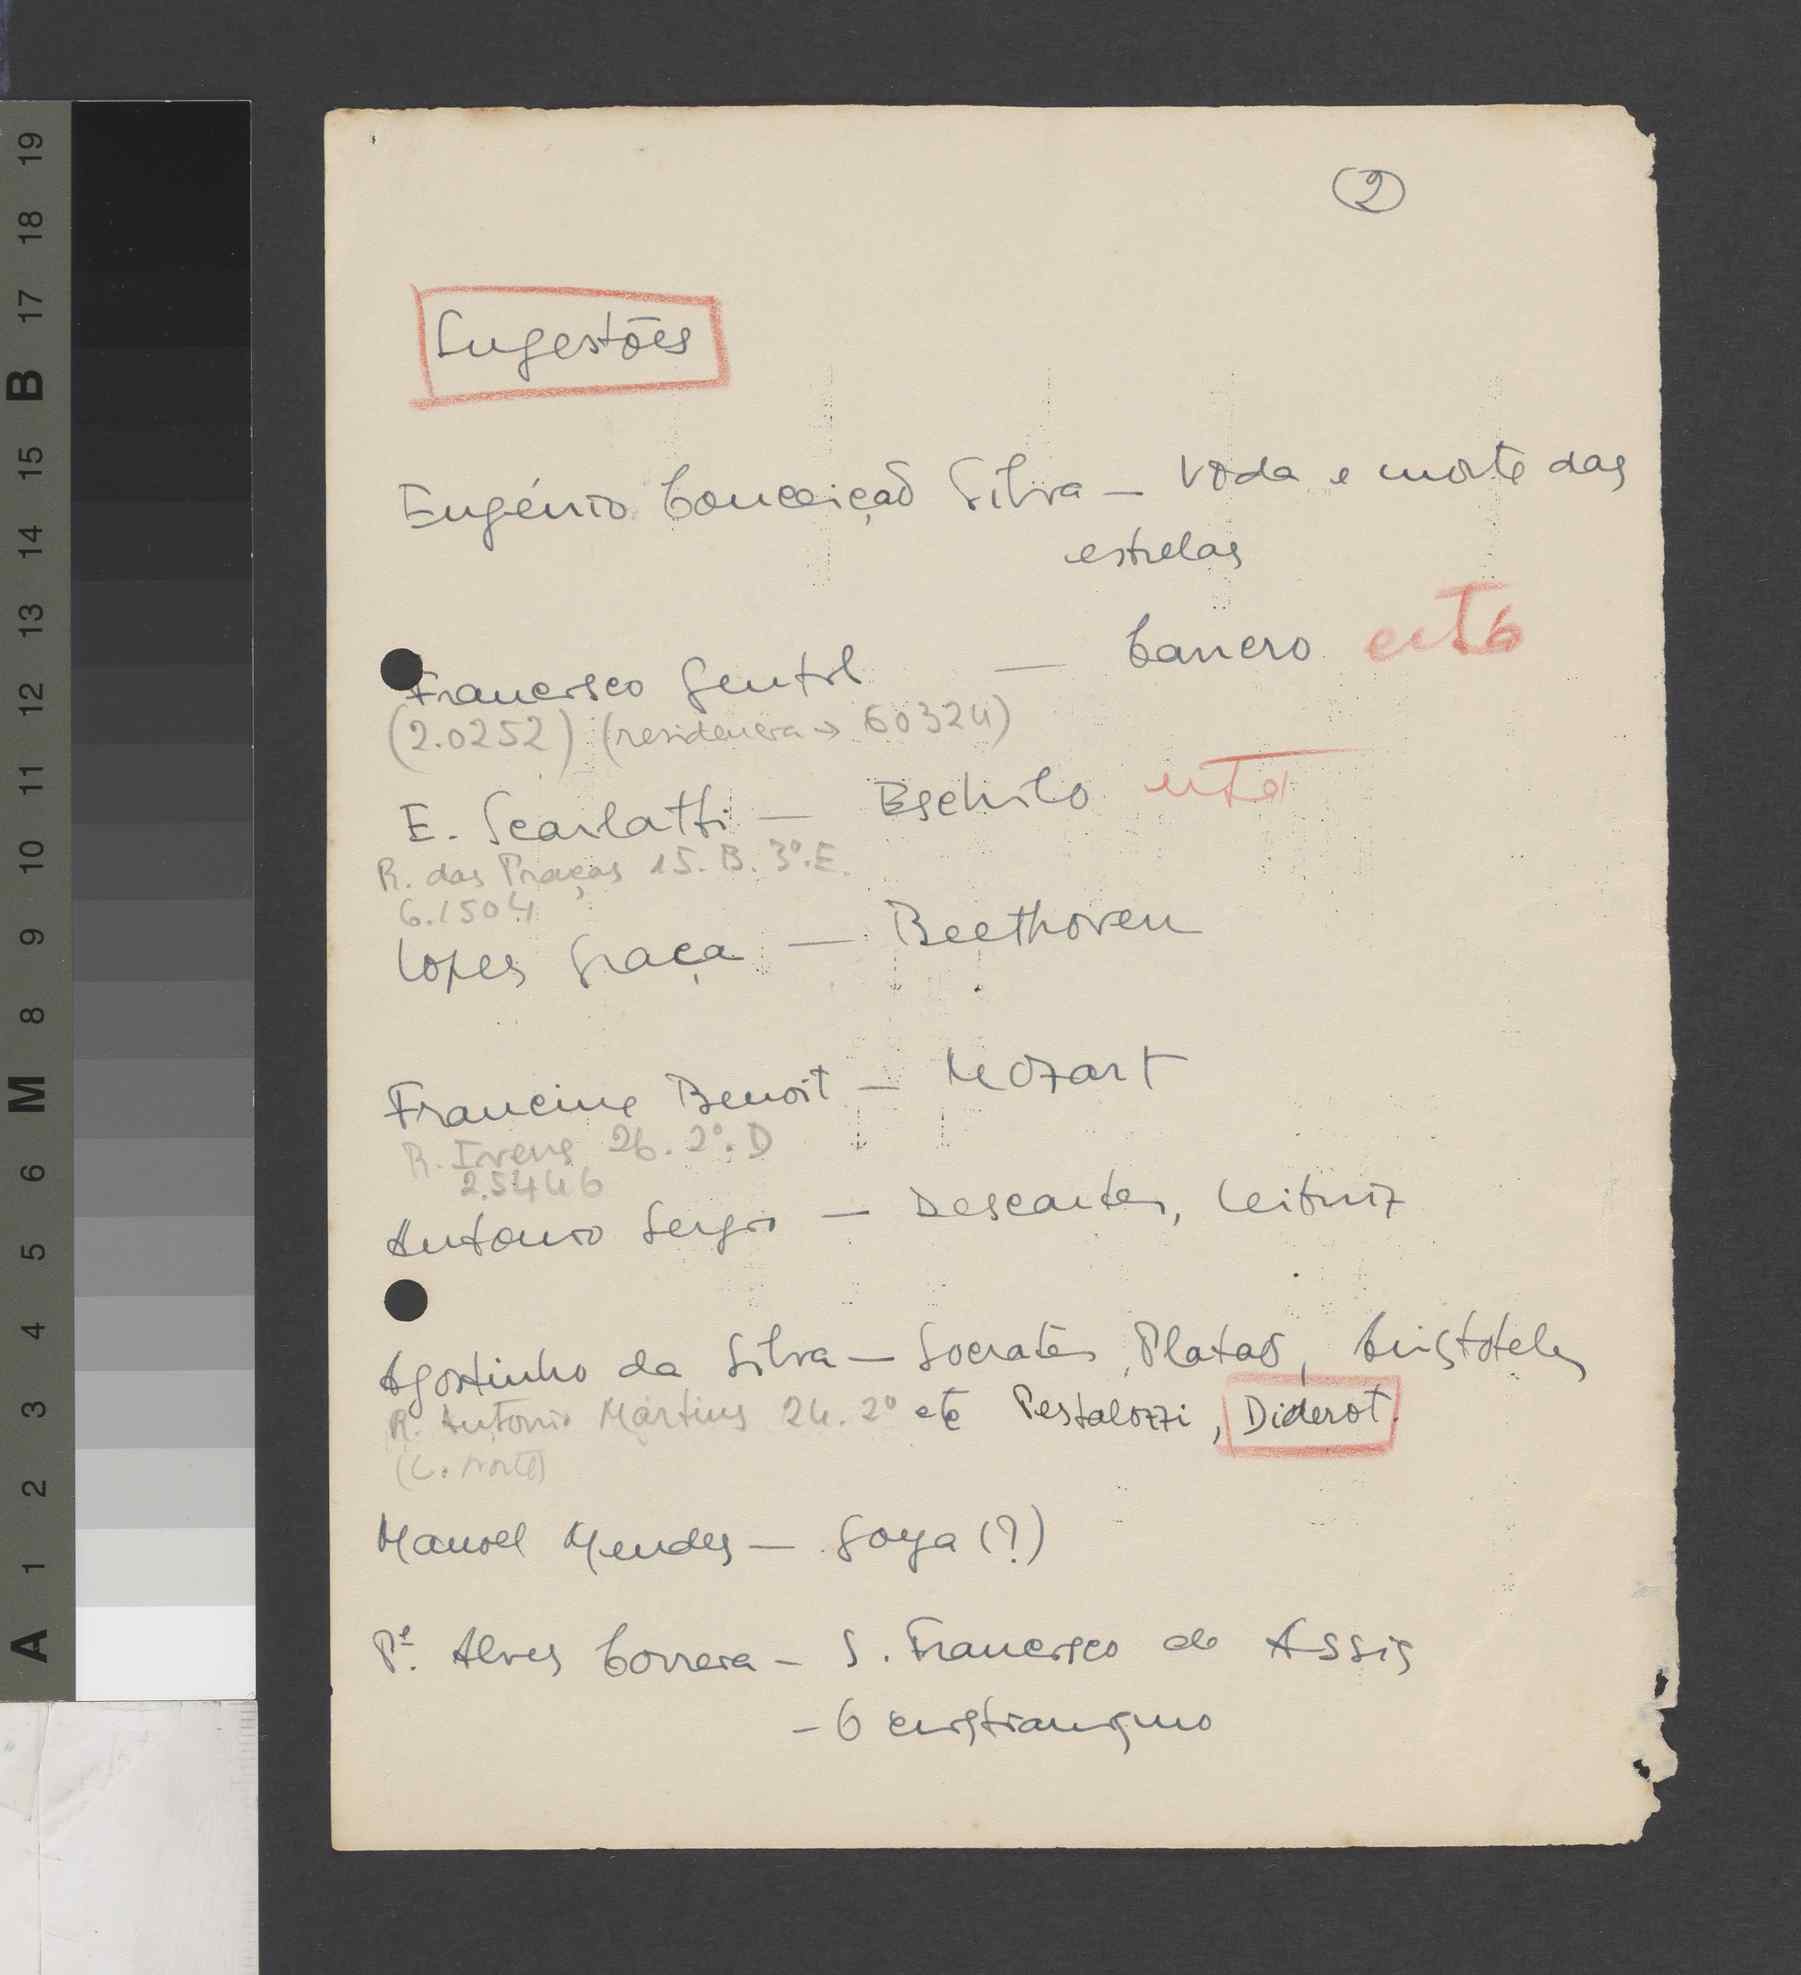 2
Sugestões
Eugénio Conceição Silva — Vida e morte das
estrelas
Francisco Gentil — Cancro
(2.0252) (residencia → 60324)
E. Scarlatti — Eschilo
R. das Praças 15. B. 3º. E.
6.1504
Lopes Graça — Beethoven
Francine Benoit — Mozart
R. Ivens 26. 2º. D
2.5446
Antonio Sergio — Descartes, Leibniz
Agostinho da Silva — Socrates, Platão, Aristoteles
R. Antonio Martins 24. 2º etc Pestalozzi, Diderot.
Manoel Mendes — Goya (?)
Pe. Alves Correia — S. Francisco de Assis
— O cristianismo
19 18 17 B 15 14 13 12 11 10 9 8 M 6 5 4 3 2 1 A